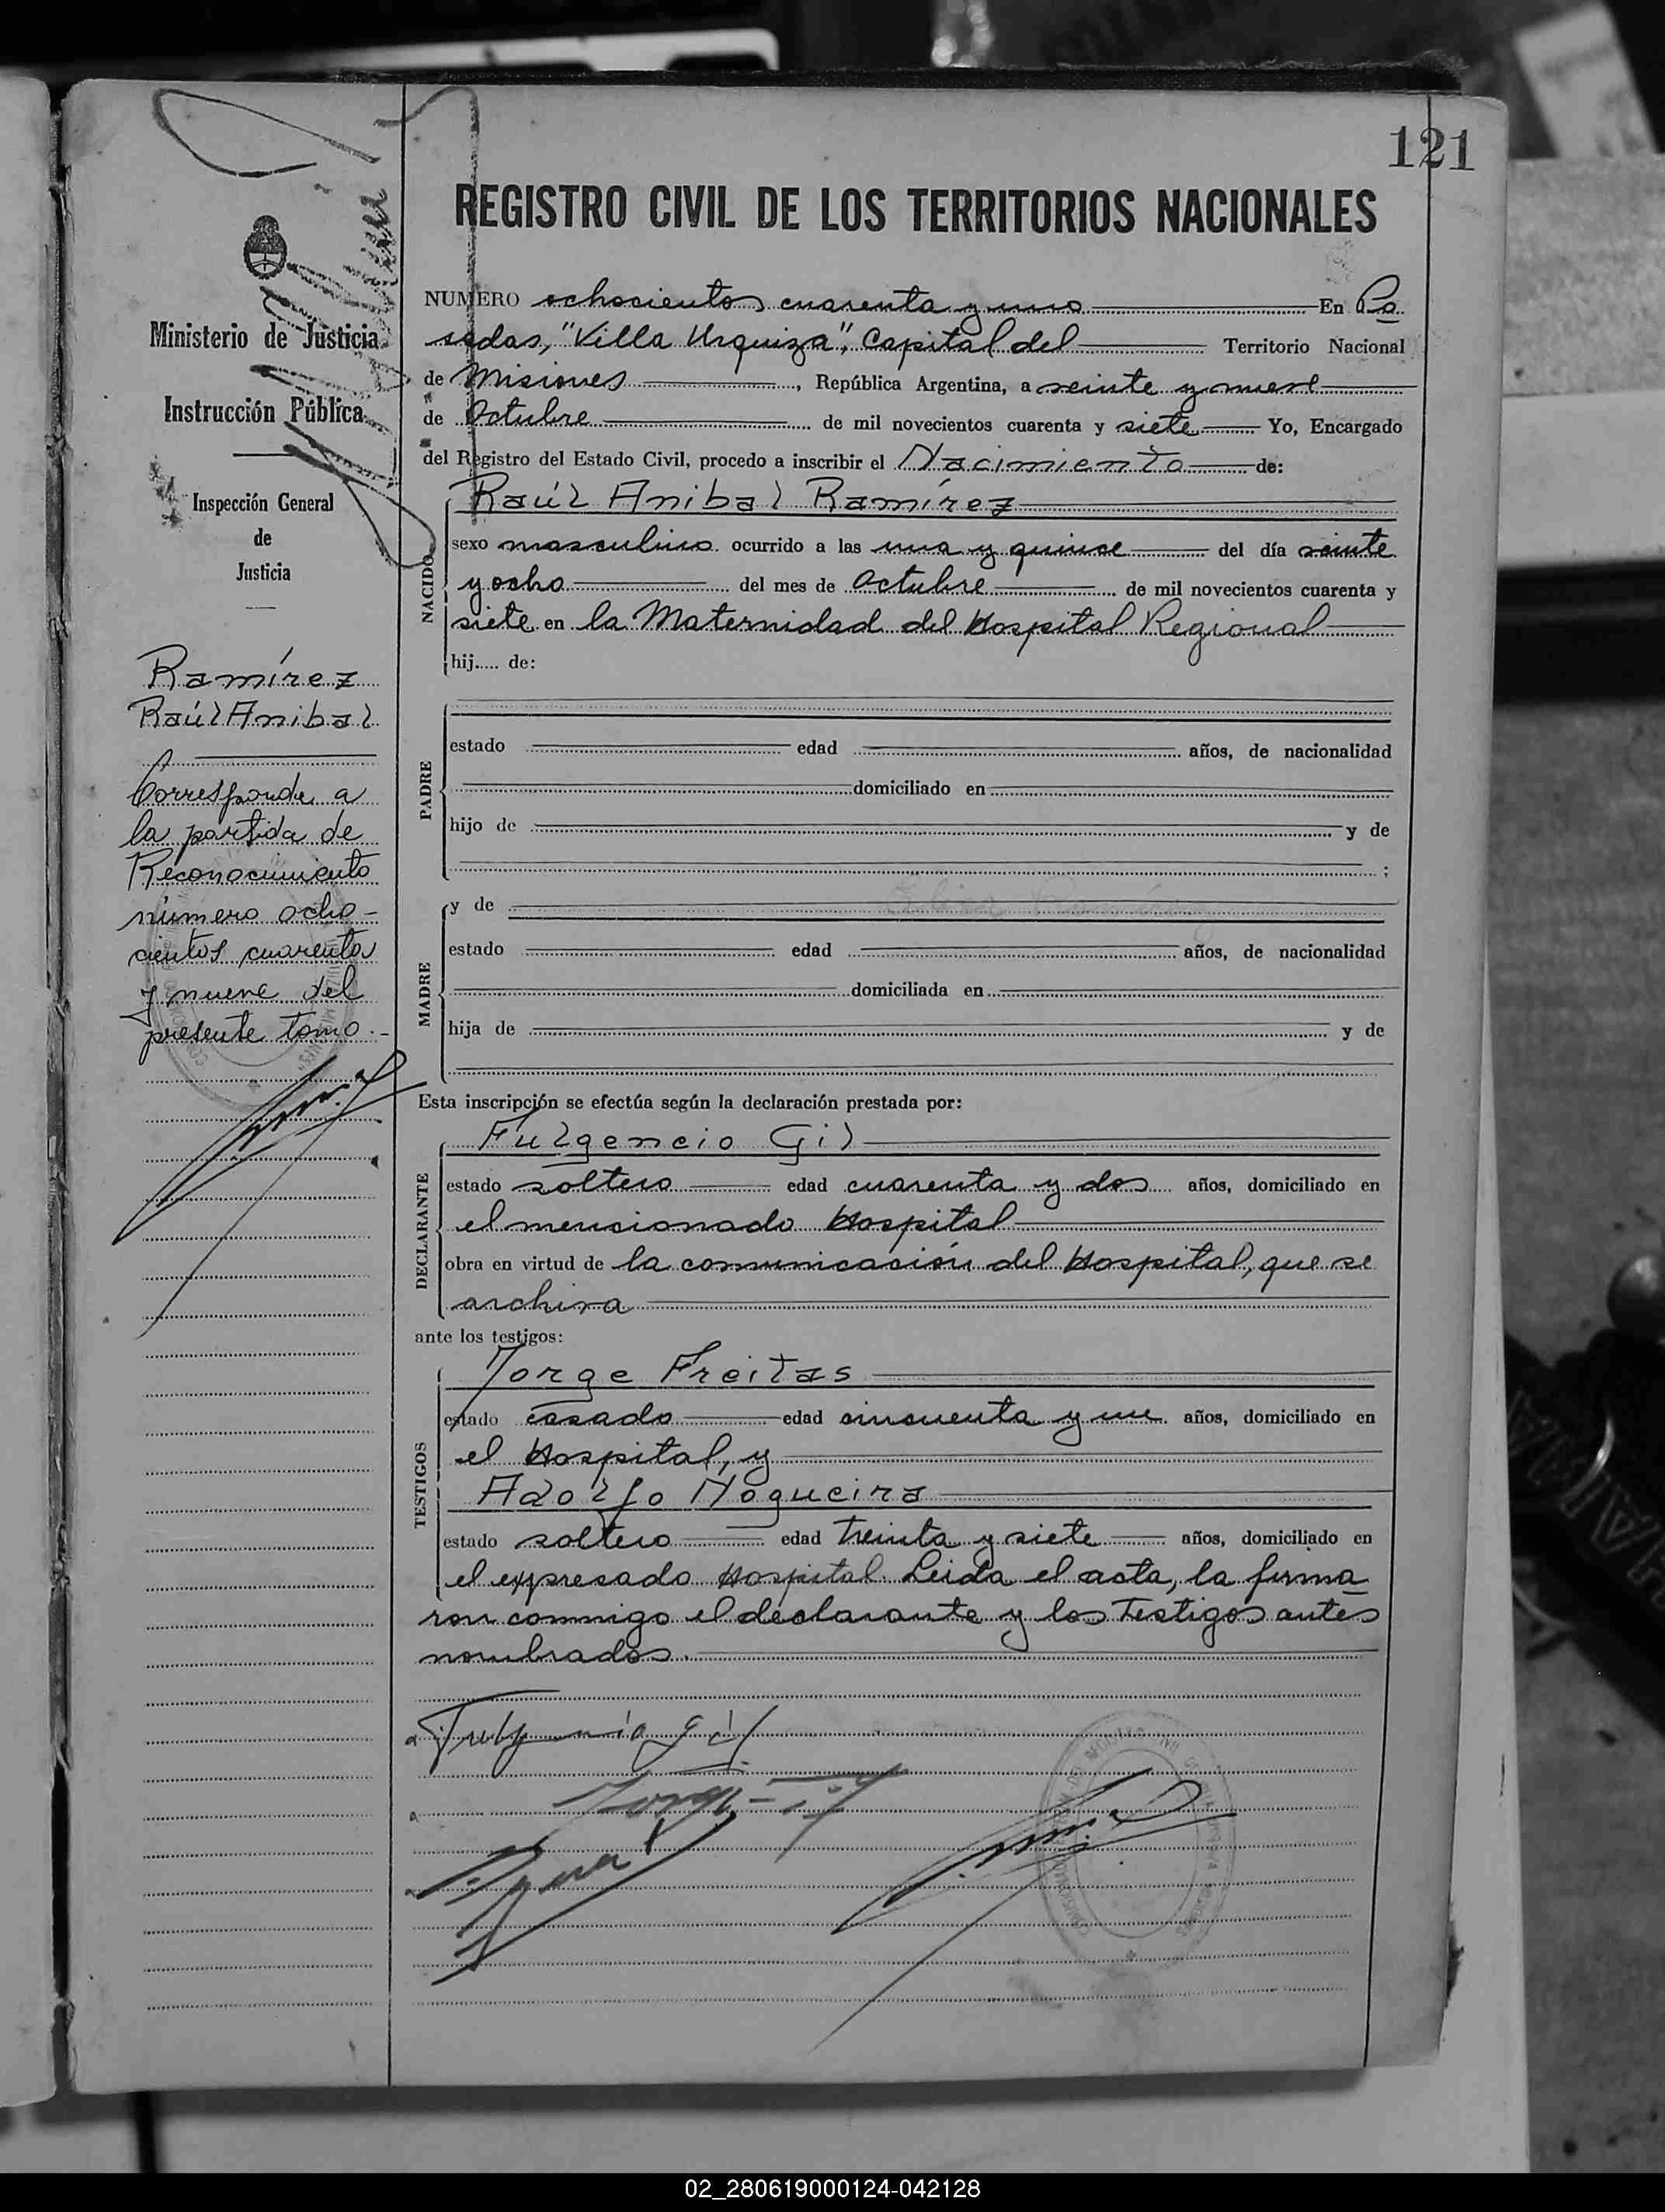 121
REGISTRO CIVIL DE LOS TERRITORIOS NACIONALES
Ministerio de Justicia
Instrucción Pública
Inspección General
de
Justicia
Ramírez
Raúl Anibal
Corresponde a
la partida de
Reconocimiento
número ocho-
cientos cuarenta
y nueve del
presente tomo.-
NUMERO ochocientos cuarenta y uno En Po
sadas, "Villa Urquiza", Capital del Territorio Nacional
de Misiones, República Argentina, a veinte y nueve
de Octubre de mil novecientos cuarenta y siete Yo, Encargado
del Registro del Estado Civil, procedo a inscribir el Nacimiento de:
NACIDO
Raúl Anibal Ramírez
sexo masculino ocurrido a las una y quince del día veinte
y ocho del mes de Octubre de mil novecientos cuarenta y
siete en la Maternidad del Hospital Regional
hij..... de:
PADRE
estado edad años, de nacionalidad
domiciliado en
hijo de y de
;
MADRE
y de
estado edad años, de nacionalidad
domiciliada en
hija de y de
Esta inscripción se efectúa según la declaración prestada por:
DECLARANTE
Fulgencio Gil
estado soltero edad cuarenta y dos años, domiciliado en
el mencionado Hospital
obra en virtud de la comunicación del Hospital, que se
archiva
ante los testigos:
TESTIGOS
Jorge Freitas
estado casado edad cincuenta y un años, domiciliado en
el Hospital, y
Adolfo Nogueira
estado soltero edad treinta y siete años, domiciliado en
el expresado Hospital. Leida el acta, la firma
ron conmigo el declarante y los testigos antes
nombrados.
Fulgencio Gil
02_280619000124-042128